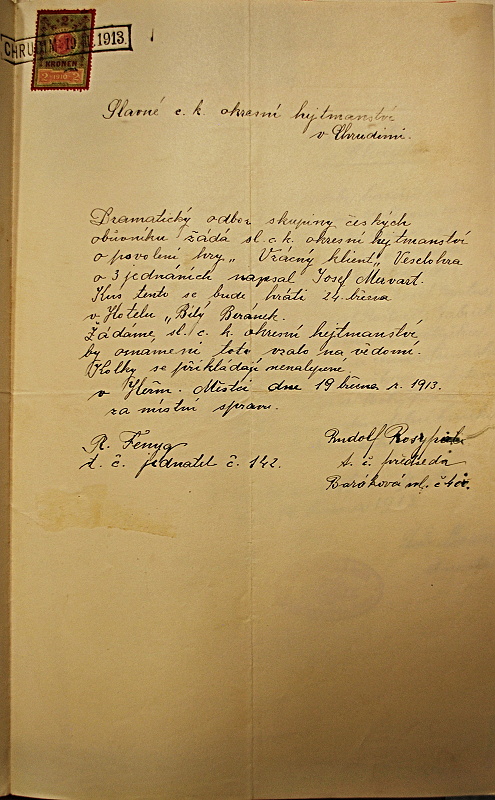 2
KRONEN
2 1910 2
CHRUDIM 19. 1913
Slavné c. k. okresní hejtmanství
v Chrudimi.
Dramatický odbor skupiny českých
obuvníku žádá sl. c. k. okresní hejtmanství
o povolení hry „Vzácný klient", Veselohra
o 3 jednáních napsal Josef Muvart.
Kus tento se bude hráti 24. března
v Hotelu „Bílý Beránek.
Žádáme, sl. c. k. okresní hejtmanství,
by oznamení toto vzalo na vědomí.
Kolky se přikládají nenalepené.
v Heřm. Městci dne 19 března r. 1913.
za místní správu.
R. Fenyg
t. č. jednatel č. 142.
Rudolf
t. č. předseda
Barákova ul. č.